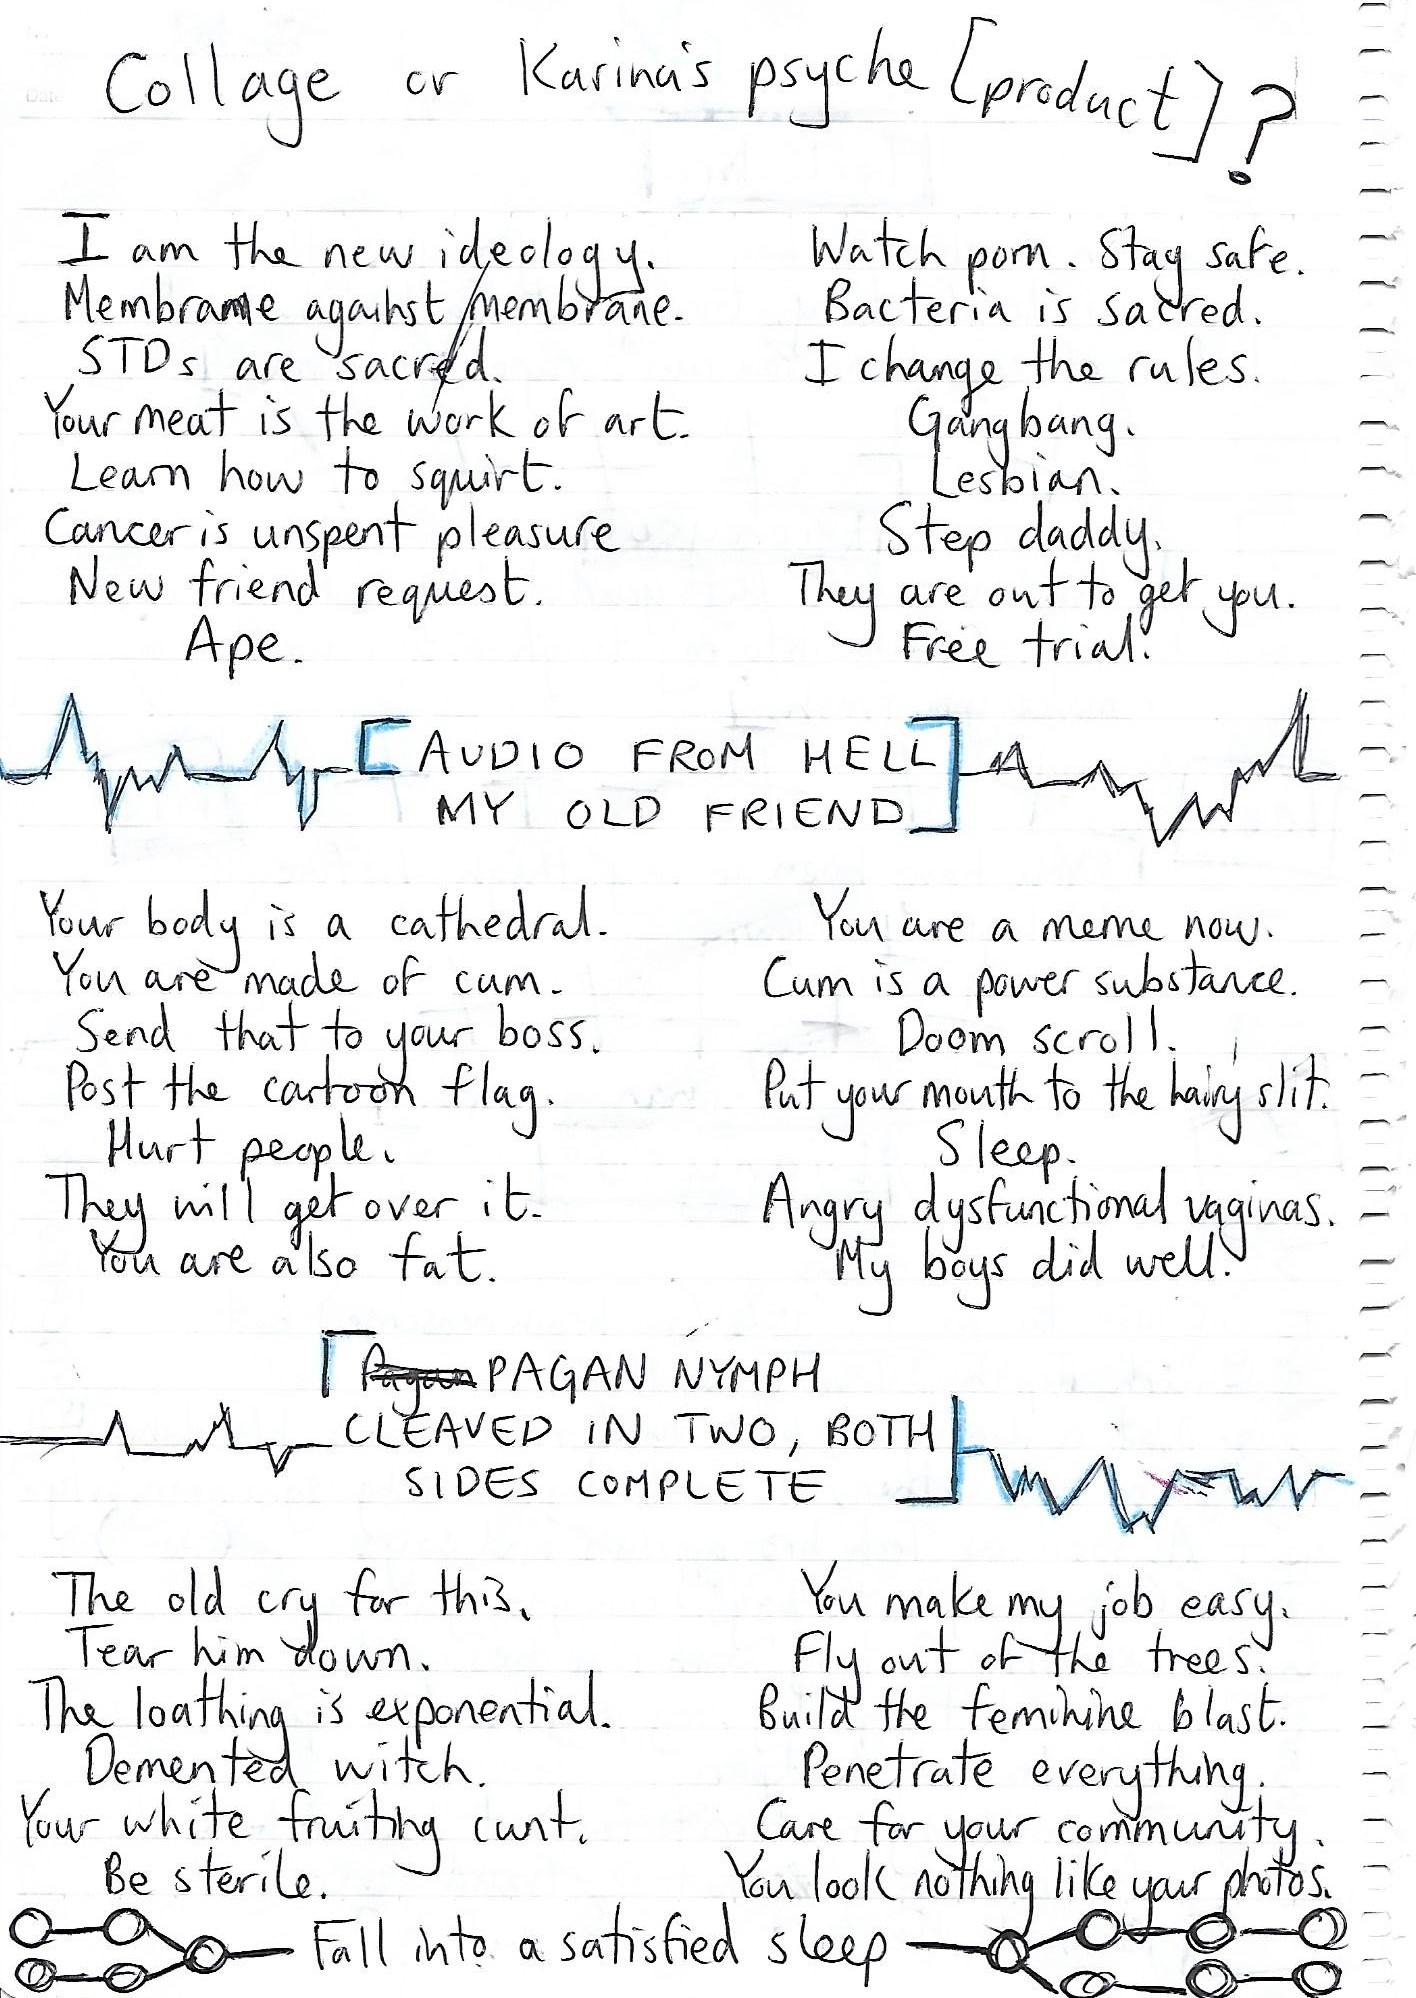 Collage or Karina's psyche [product]?
I am the new ideology.
Membrame against membrane.
STDs are sacred.
Your meat is the work of art.
Learn how to squirt.
Cancer is unspent pleasure
New friend request.
Ape.
Watch porn. Stay safe.
Bacteria is sacred.
I change the rules.
Gangbang.
Lesbian.
Step daddy.
They are out to get you.
Free trial.
[AUDIO FROM HELL
MY OLD FRIEND]
Your body is a cathedral.
You are made of cum.
Send that to your boss.
Post the cartoon flag.
Hurt people.
They will get over it.
You are also fat.
You are a meme now.
Cum is a power substance.
Doom scroll.
Put your mouth to the hairy slit.
Sleep.
Angry dysfunctional vaginas.
My boys did well.
[Pagan PAGAN NYMPH
CLEAVED IN TWO, BOTH
SIDES COMPLETE]
The old cry for this.
Tear him down.
The loathing is exponential.
Demented witch.
Your white fruiting cunt.
Be sterile.
You make my job easy.
Fly out of the trees.
Build the feminine blast.
Penetrate everything.
Care for your community.
You look nothing like your photos.
Fall into a satisfied sleep